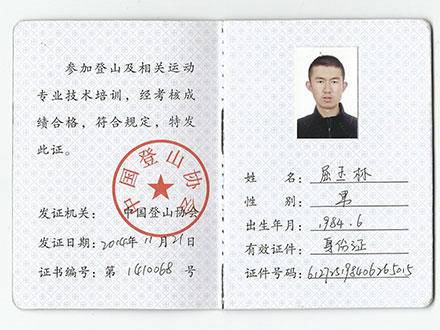 参加登山及相关运动
专业技术培训，经考核成
绩合格，符合规定，特发
此证。
中国登山协会
发证机关：中国登山协会
发证日期：2014年11月21日
证书编号：第 1410068 号
姓 名：屈丕林
性 别：男
出生年月：1984.6
有效证件：身份证
证件号码：